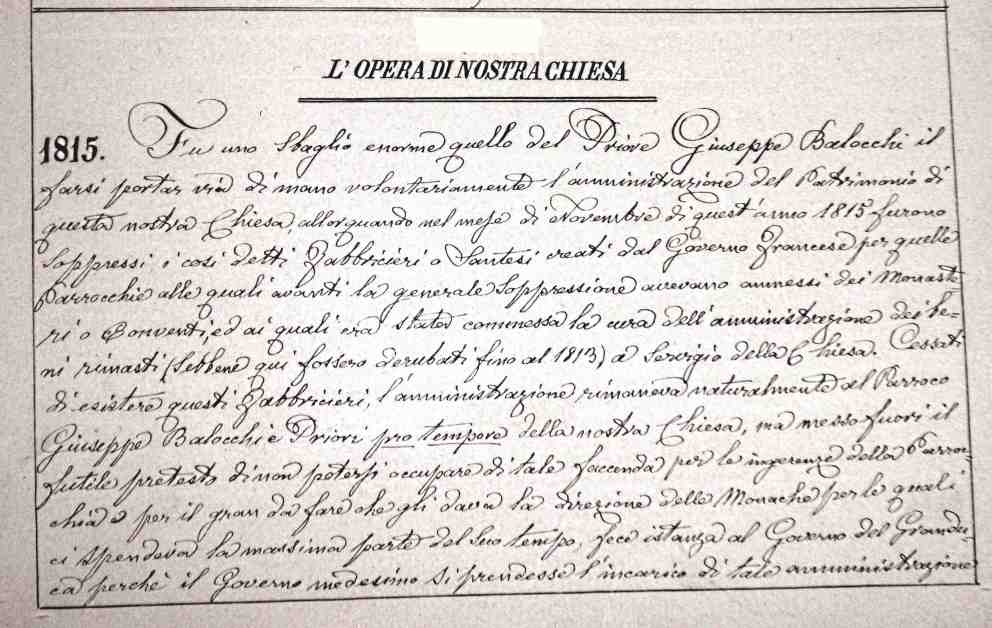 L' OPERA DI NOSTRA CHIESA
1815. Fu uno sbaglio enorme quello del Priore Giuseppe Balocchi il
farsi portar via di mano volontariamente l'amministrazione del Patrimonio di
questa nostra Chiesa, allorquando nel mese di Novembre di quest'anno 1815 furono
soppressi i così detti Fabbricieri o Santesi creati dal Governo Francese per quelle
Parrocchie alle quali avanti la generale Soppressione avevano annessi dei Monaste-
ri o Conventi, ed ai quali era stata commessa la cura dell'amministrazione dei be-
ni rimasti (sebbene qui fossero derubati fino al 1813) a servigio della Chiesa. Cessati
di esistere questi Fabbricieri, l'amministrazione rimaneva naturalmente al Parroco
Giuseppe Balocchi e Priori pro tempore della nostra Chiesa, ma messo fuori il
futile pretesto di non potersi occupare di tale faccenda per le ingerenze della Parroc-
chia e per il gran da fare che gli dava la direzione delle Monache per le quali
ci spendeva la massima parte del suo tempo, fece istanza al Governo del Grandu-
ca perchè il Governo medesimo si prendesse l'incarico di tale amministrazione